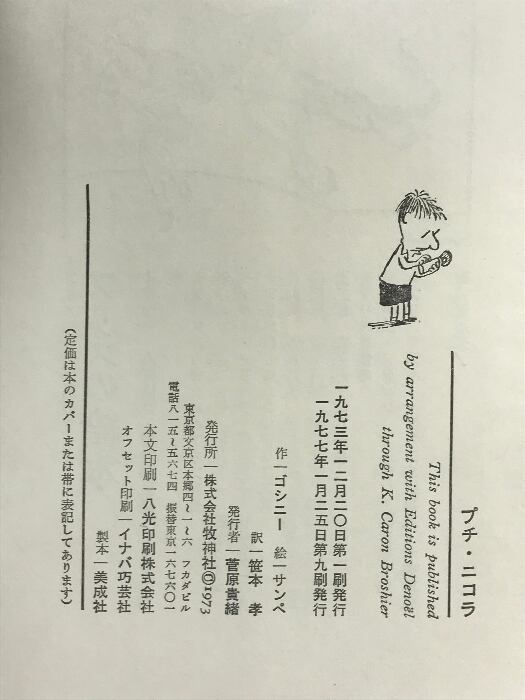 プチ・ニコラ
This book is published
by arrangement with Editions Denoël
through K. Caron Broshier
一九七三年一二月二〇日第一刷発行
一九七七年一月二五日第九刷発行
作―ゴシニー 絵―サンペ
訳―笹本 孝
発行者―菅原貴緒
発行所―株式会社牧神社©1973
東京都文京区本郷四~一~六 フカダビル
電話八一五~五六七四 振替東京一六七六〇一
本文印刷―八光印刷株式会社
オフセット印刷―イナバ巧芸社
製本―美成社
(定価は本のカバーまたは帯に表記してあります)